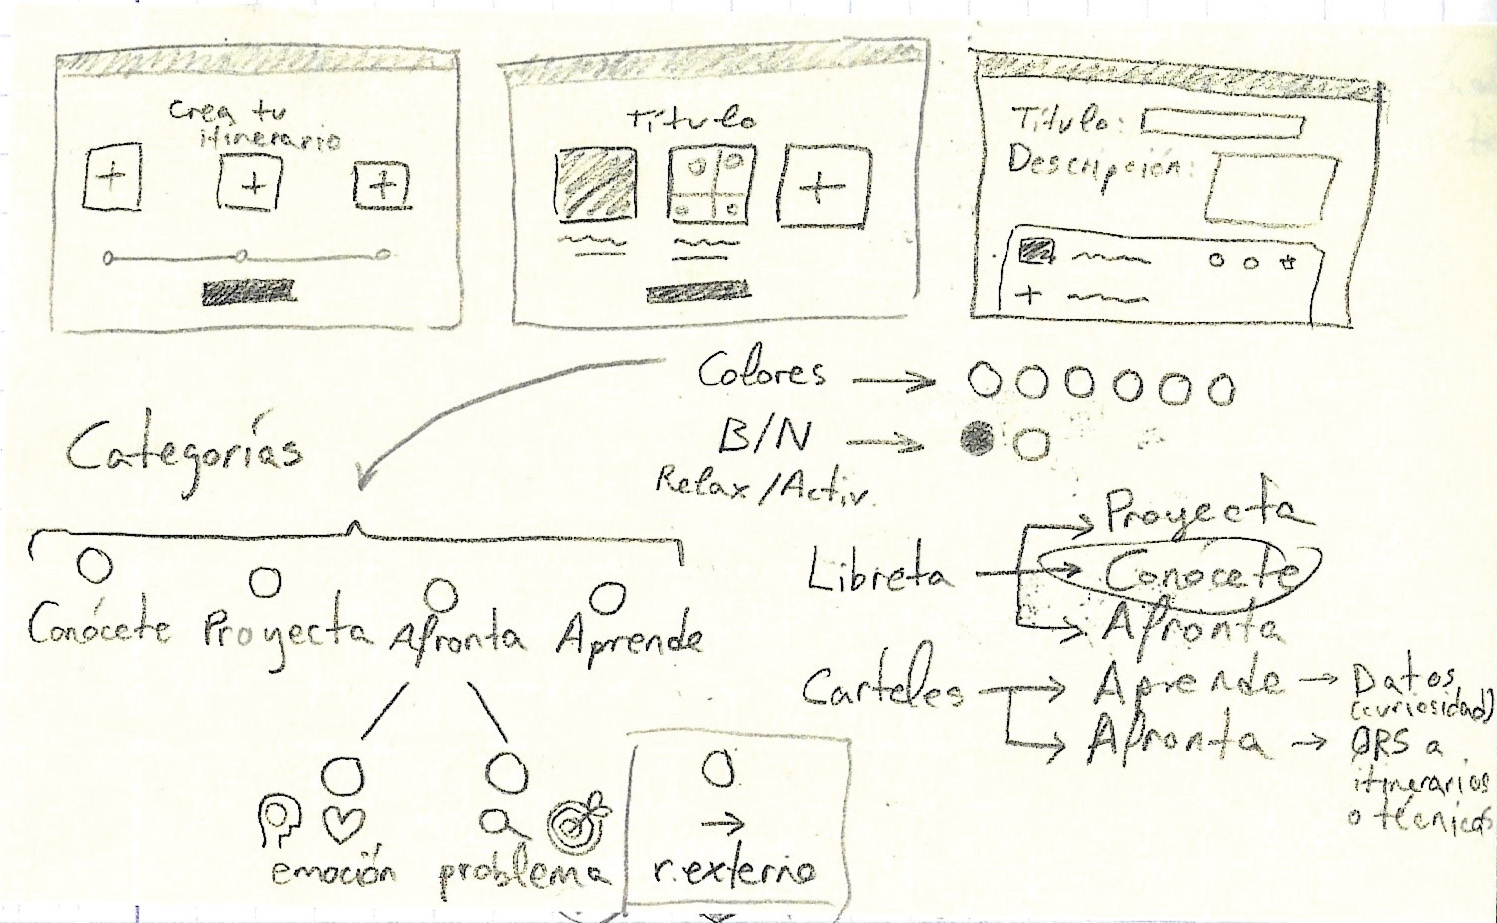 Crea tu
itinerario
Título
Título:
Descripción:
Colores →
B/N →
Relax/Activ.
Categorías
Conócete Proyecta Afronta Aprende
emoción problema r.externo
→
Libreta → Proyecta
Conócete
Afronta
Carteles → Aprende → Datos
(curiosidad)
Afronta → QRS a
itinerarios
o técnicas